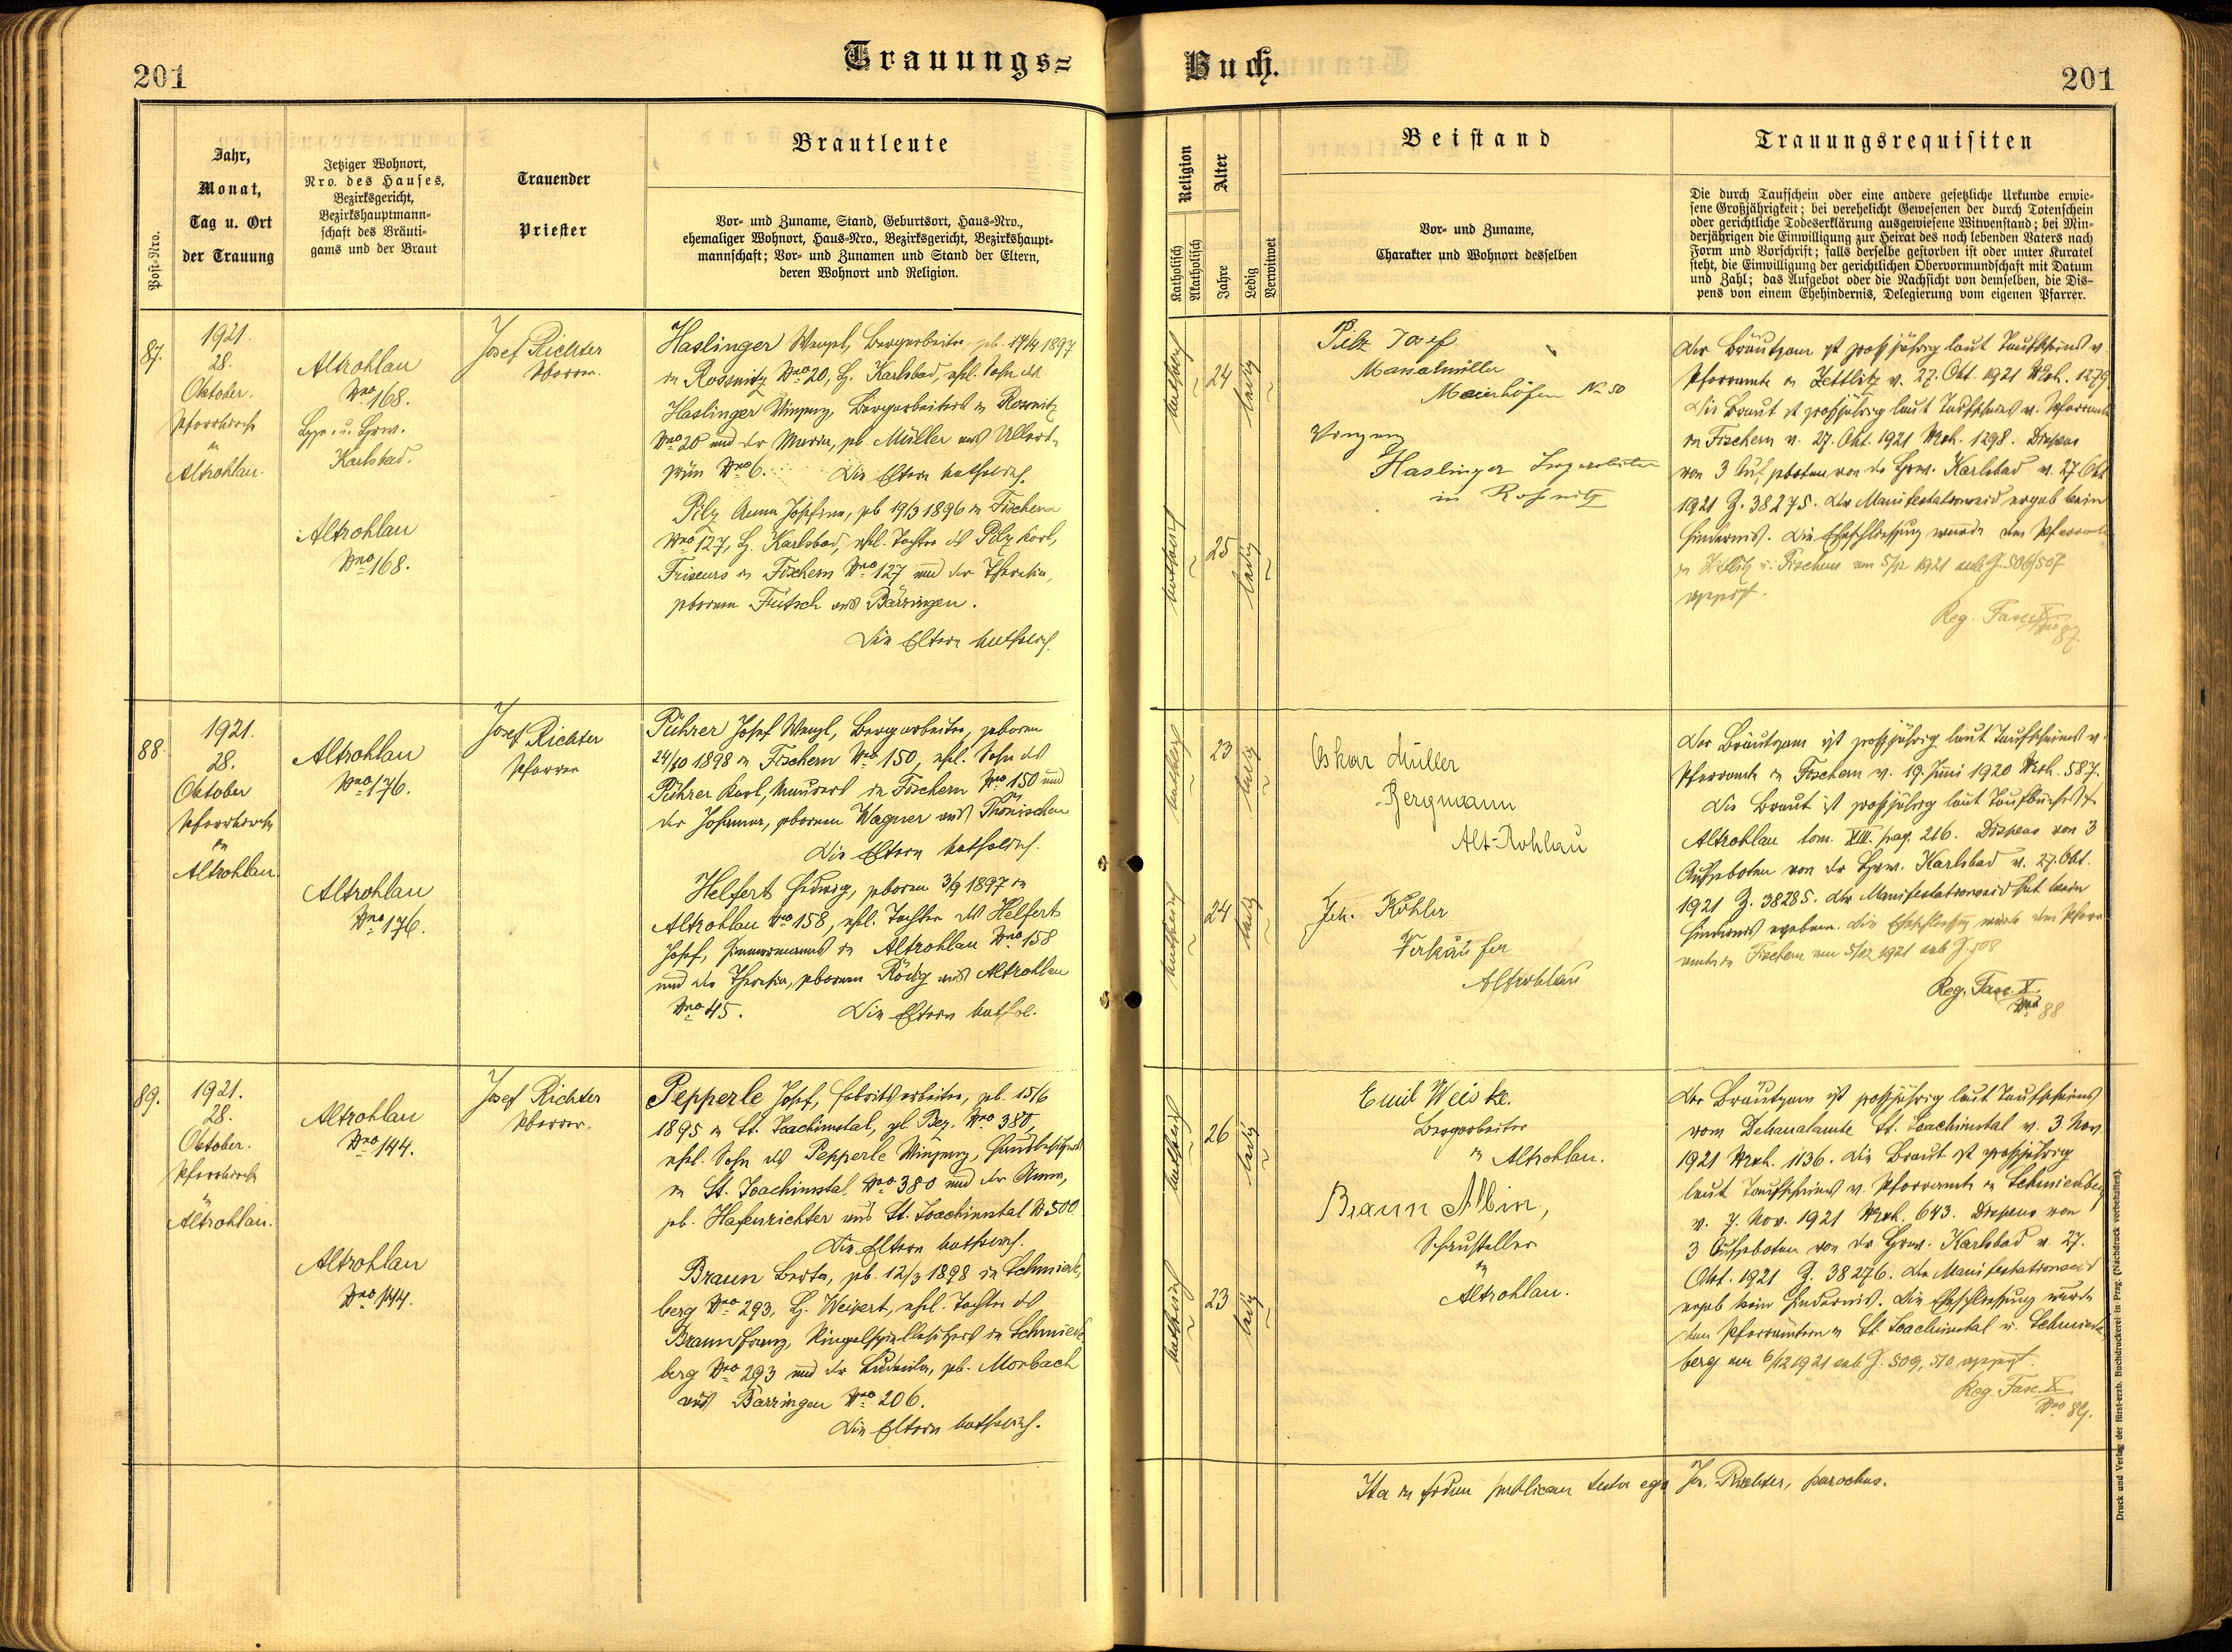 201
Trauungs=
Buch.
201
Post-Nro.
Jahr,
Monat,
Tag u. Ort
der Trauung
Jetziger Wohnort,
Nro. des Hauses,
Bezirksgericht,
Bezirkshauptmann-
schaft des Bräuti-
gams und der Braut
Trauender
Priester
Brautleute
Vor- und Zuname, Stand, Geburtsort, Haus-Nro.,
ehemaliger Wohnort, Haus-Nro., Bezirksgericht, Bezirkshaupt-
mannschaft; Vor- und Zunamen und Stand der Eltern,
deren Wohnort und Religion.
Religion
Katholisch
Akatholisch
Alter
Jahre
Ledig
Verwitwet
Beistand
Vor- und Zuname,
Charakter und Wohnort desselben
Trauungsrequisiten
Die durch Taufschein oder eine andere gesetzliche Urkunde erwie-
sene Großjährigkeit; bei verehelicht Gewesenen der durch Totenschein
oder gerichtliche Todeserklärung ausgewiesene Witwenstand; bei Min-
derjährigen die Einwilligung zur Heirat des noch lebenden Vaters nach
Form und Vorschrift; falls derselbe gestorben ist oder unter Kuratel
steht, die Einwilligung der gerichtlichen Obervormundschaft mit Datum
und Zahl; das Aufgebot oder die Nachsicht von demselben, die Dis-
pens von einem Ehehindernis, Delegierung vom eigenen Pfarrer.
87.
1921.
28.
Oktober.
Pfarrkirche
in
Altrohlau.
Altrohlau
Nro 168.
Karlsbad.
Altrohlau
Nro 168.
Josef Richter
Pfarrer.
Haslinger Wenzel, Bergarbeiter, geb. 1897
in Rossnitz Nro 20, B. Karlsbad, ehel. Sohn des
Haslinger Vinzenz, Bergarbeiters in Rossnitz
Nro 20 und der Maria, geb. Müller aus Ullers-
grün Nro 6. Die Eltern katholisch.
Pilz Anna Josefine, geb 19/3 1896 in Fischern
Nro 127, B. Karlsbad, ehel. Tochter des Pilz Karl,
Friseurs in Fischern Nro 127 und der Theresia,
geborenen Fritsch aus Bärringen.
Die Eltern katholisch.
katholisch
24
ledig
katholisch
25
ledig
Pilz Josef
Maierhöfen No 50
Vinzenz
Haslinger Bergarbeiter
in Roßnitz
Der Bräutigam ist großjährig laut Taufscheines v.
Pfarramte in Zettlitz v. 27. Okt. 1921 Exh. 1279
Die Braut ist großjährig laut Taufscheines v. Pfarramte
in Fischern v. 27. Okt. 1921 Exh. 1298. Dispens
von 3 Aufgeboten von der Bzw. Karlsbad v. 27. Okt
1921 Z. 38275. Der Manifestationseid ergab kein
Hindernis. Die Eheschliessung wurde den Pfarramte
in Zettlitz u. Fischern am 5/12 1921 sub Z. 506/507
Reg. Fasc. X
Nro 87.
88.
1921.
28.
Oktober
Pfarrkirche
in
Altrohlau
Altrohlau
Nro 176.
Altrohlau
Nro 176.
Josef Richter
Pfarrer
Pührer Josef Wenzl, Bergarbeiter, geboren
24/10 1898 in Fischern Nro 150, ehel. Sohn des
Pührer Karl, Maurers in Fischern Nro 150 und
der Johanna, geborenen Wagner aus Thönischen
Die Eltern katholisch.
Helfert Hedwig, geboren 3/9 1897 in
Altrohlau Nro 158, ehel. Tochter des Helfert
Josef, Zimmermanns in Altrohlau Nro 158
und der Theresia, geborenen Rödig aus Altrohlau
Nro 45. Die Eltern kathol.
katholisch
23
ledig
katholisch
24
ledig
Oskar Müller
Bergmann
Alt-Rohlau
Joh. Köhler
Verkäufer
Altrohlau
Der Bräutigam ist großjährig laut Taufscheines v.
Pfarramte in Fischern v. 19. Juni 1920 Exh. 587.
Die Braut ist großjährig laut Taufbuches
Altrohlau tom. XIII. pag. 216. Dispens von 3
Aufgeboten von der Bzw. Karlsbad v. 27. Okt.
1921 Z. 38285. Der Manifestationseid hat kein
Hindernis ergeben. Die Eheschließung wurde dem Pfarr-
amte in Fischern am 5/12 1921 sub Z. 508
Reg. Fasc. X.
Nro 88
89.
1921.
28.
Oktober.
Pfarrkirche
in
Altrohlau.
Altrohlau
Nro 144.
Altrohlau
Nro 144.
Josef Richter
Pfarrer.
Pepperle Josef, Fabriksarbeiter, geb. 15/6
1895 in St. Joachimstal, gl. Bez. Nro 380,
ehel. Sohn des Pepperle Vinzenz,
in St. Joachimstal Nro 380 und der Anna,
geb. Hafenrichter aus St. Joachimstal No 500
Die Eltern katholisch.
Braun Berta, geb. 12/3 1898 in Schmiede-
berg Nro 293, B. Weipert, ehel. Tochter des
Braun Franz, Ringelspielbesitzers in Schmiede-
berg Nro 293 und der Ludmila, geb. Morbach
aus Bärringen Nro 206.
Die Eltern katholisch.
katholisch
26
ledig
katholisch
23
ledig
Emil Weiske.
Bergarbeiter
in Altrohlau.
Braun Albin,
Schausteller
in
Altrohlau.
Der Bräutigam ist großjährig laut Taufscheines
vom Dekanalamte St. Joachimstal v. 3. Nov.
1921 Exh. 1136. Die Braut ist großjährig
laut Taufscheines v. Pfarramte in Schmiedeberg
v. 7. Nov. 1921 Exh. 643. Dispens von
3 Aufgeboten von der Bzw. Karlsbad v. 27.
Okt. 1921 Z. 38276. Der Manifestationseid
ergab kein Hindernis. Die Eheschließung wurde
den Pfarrämtern in St. Joachimstal u. Schmiede-
berg am 6/12 1921 sub Z. 509, 510
Reg. Fasc. X.
Nro 89.
Ita in fidem publicam testor ego Jos. Richter, parochus.
Druck und Verlag der fürst-erzb. Buchdruckerei in Prag. (Nachdruck vorbehalten).